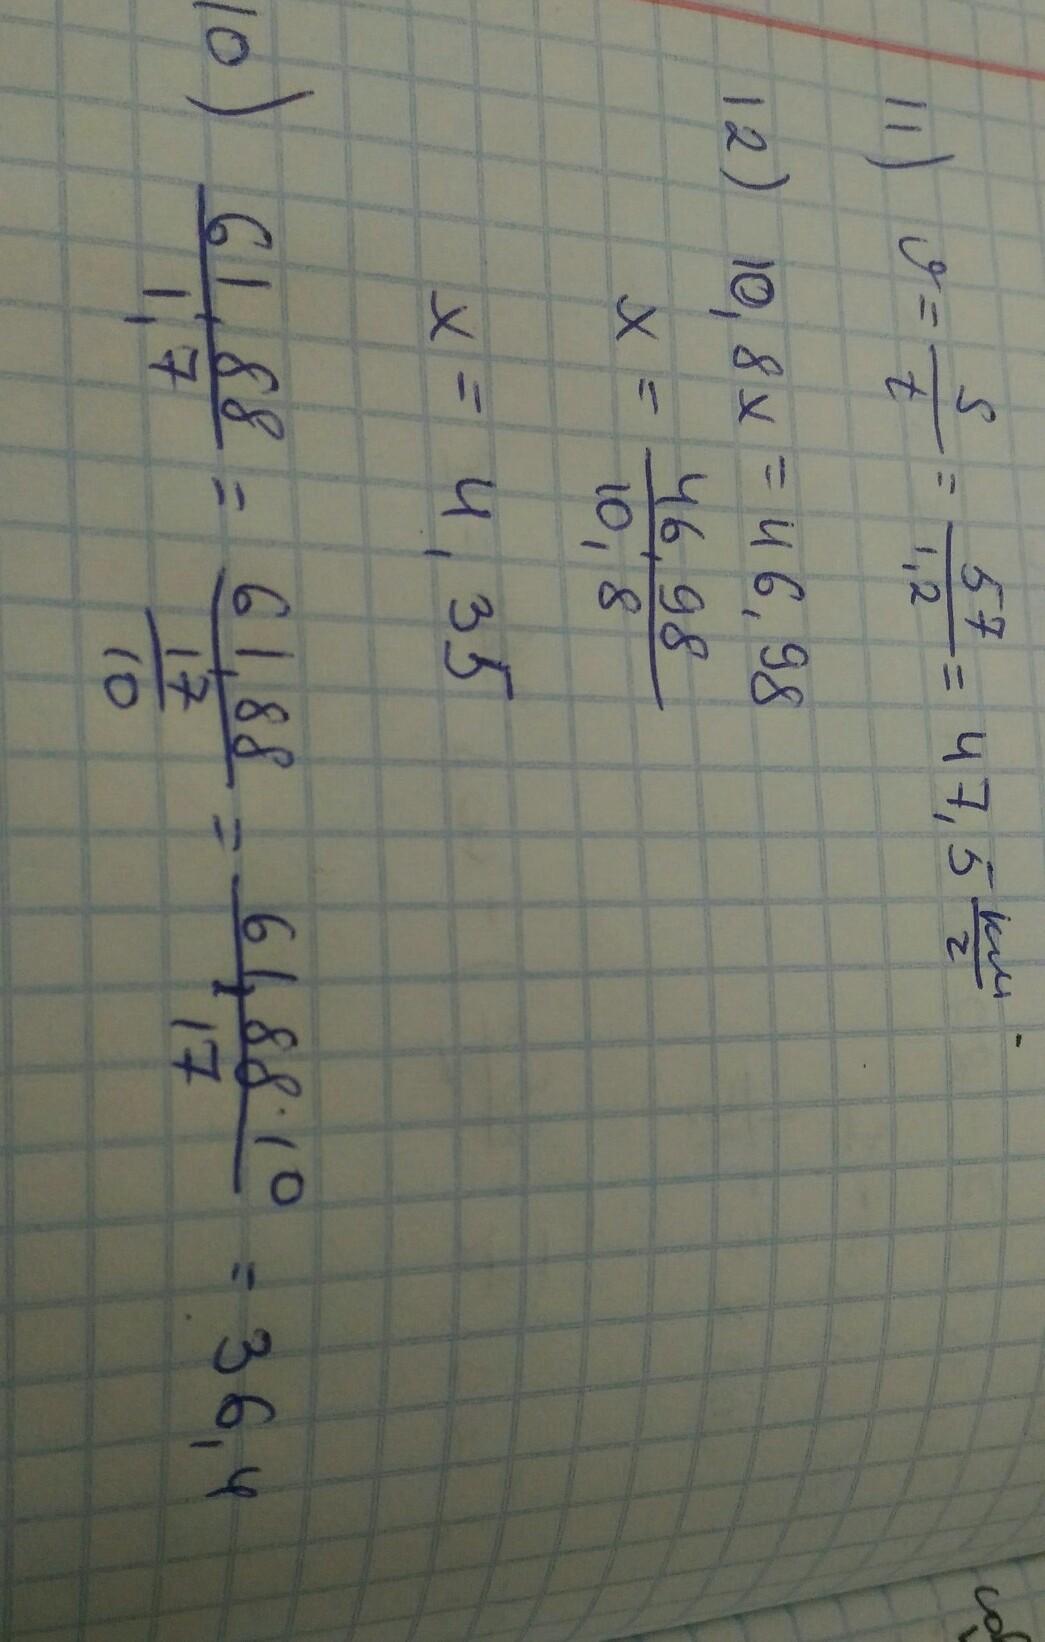 11) v = S/t = 57/1,2 = 47,5 км/г
12) 10,8x = 46,98
x = 46,98/10,8
x = 4,35
10) 61,88/1,7 = 61,88/(17/10) = 61,88·10/17 = 36,4